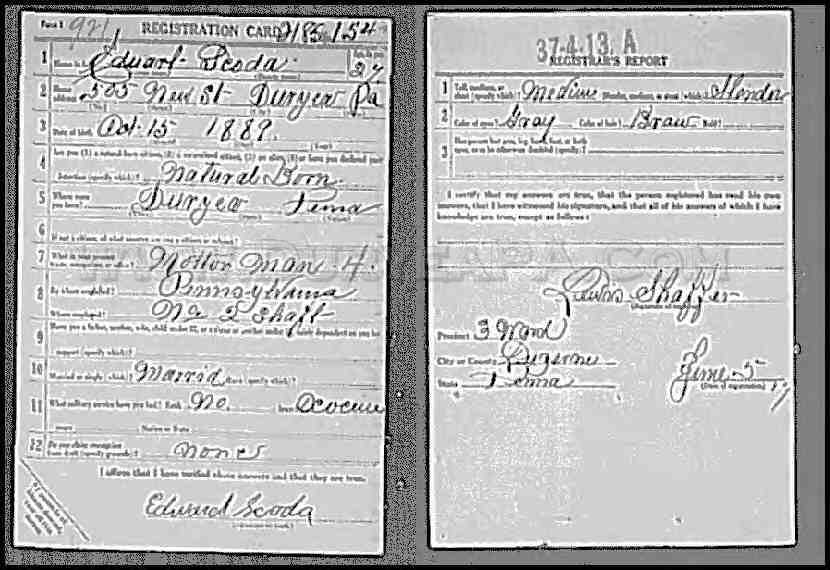 Form 1 921 REGISTRATION CARD 2186 154
1 Name in full Eduart Scoda 27
2 Home address 505 New St Duryea Pa
3 Date of birth Oct. 15 1889.
4 Are you (1) a natural-born citizen, (2) a naturalized citizen, (3) an alien, (4) or have you declared your
intention (specify which)? Natural Born
5 Where were you born? Duryea Penna
6 If not a citizen, of what country are you a citizen or subject?
7 What is your present trade, occupation, or office? Mottor Man 4.
8 By whom employed? Pinnsylvania
Where employed? No 2 Shaft
9 Have you a father, mother, wife, child under 12, or a sister or brother under 12, solely dependent on you for
support (specify which)?
10 Married or single (which)? Marrid Race (specify which)?
11 What military service have you had? Rank No.
years Nation or State
12 Do you claim exemption from draft (specify grounds)? nones
I affirm that I have verified above answers and that they are true.
Edward Scoda
37-4-13. A
REGISTRAR'S REPORT
1 Tall, medium, or short (specify which)? Medium Slender, medium, or stout (which)? Slender
2 Color of eyes? Gray Color of hair? Braw Bald?
3 Has person lost arm, leg, hand, foot, or both
eyes, or is he otherwise disabled (specify)?
I certify that my answers are true, that the person registered has read his own
answers, that I have witnessed his signature, and that all of his answers of which I have
knowledge are true, except as follows:
DURYEAPA.COM
Lewis Shaffer
(Signature of registrar)
Precinct 3 Ward
City or County Luzerne
State Penna
June 5 17
(Date of registration)